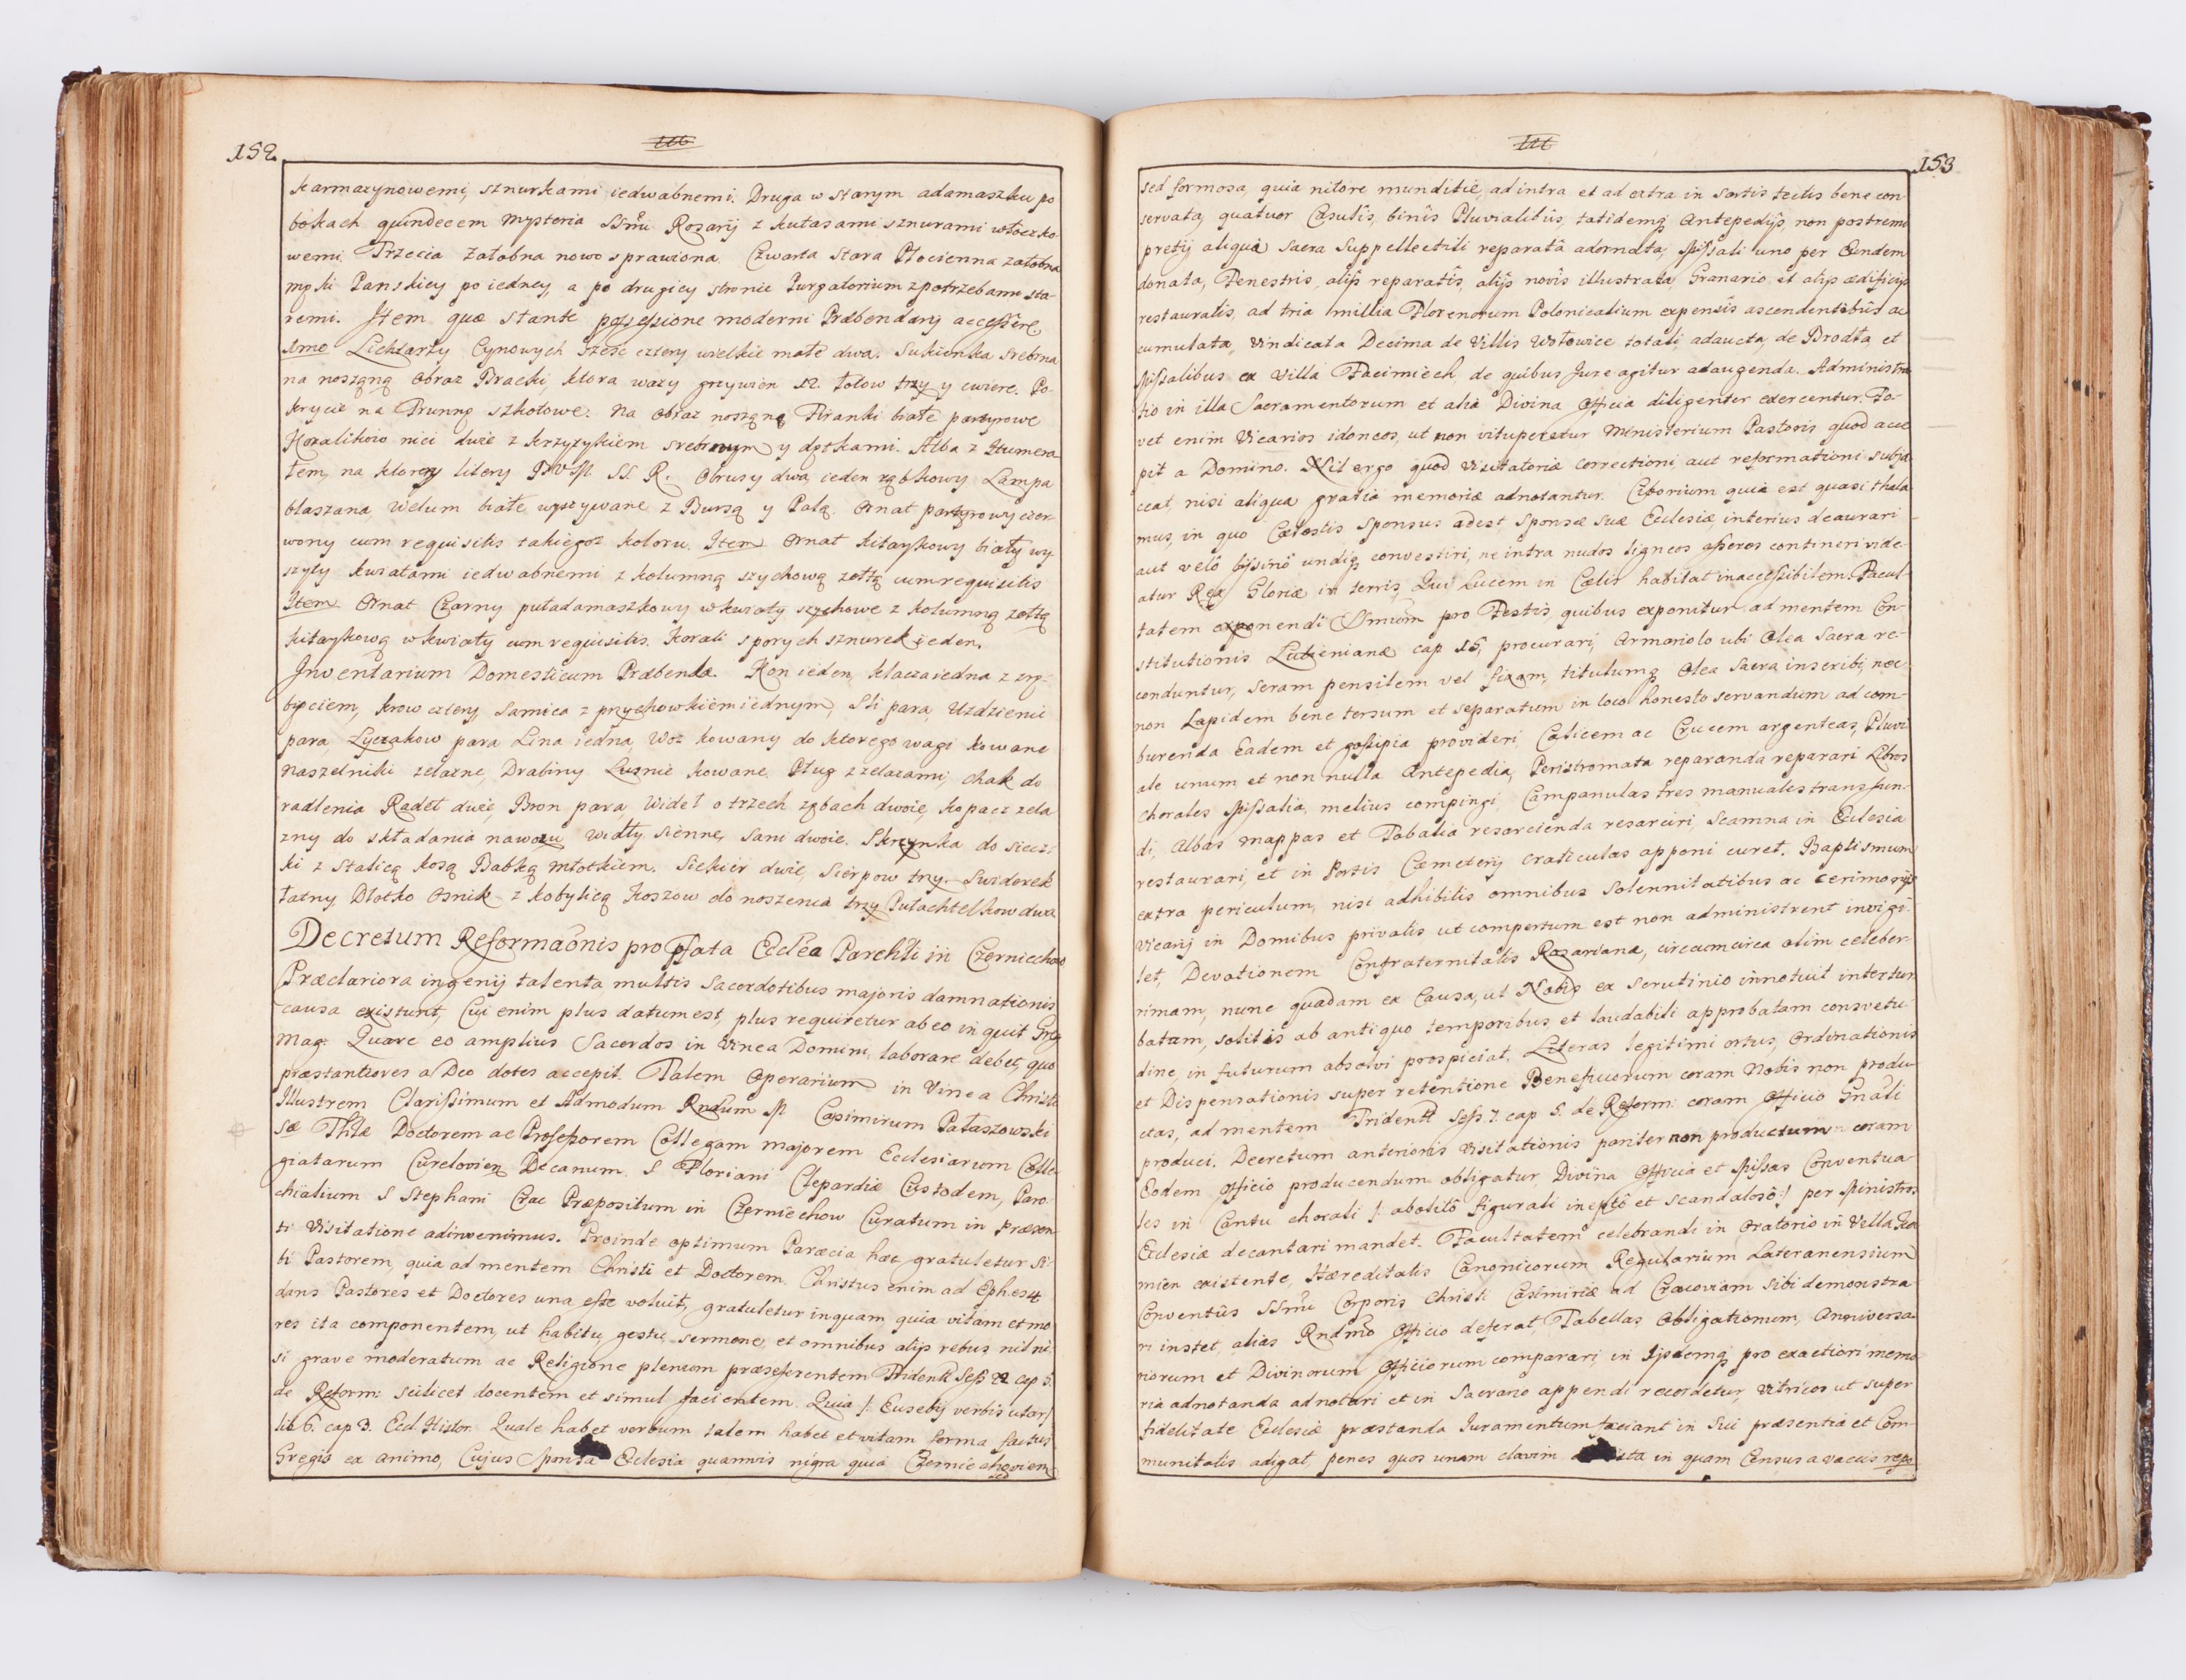 152.
karmazynowemi, sznurkami iedwabnemi. Druga w starym adamaszku po
bokach quindecem Mysteria SSmi Rosarij z kutasami sznurami włoczko-
wemi. Trzecia Załobna nowo sprawiona. Czwarta stara Płocienna załobna
męki Panskiey po iedney, a po drugiey stronie Purgatorium zpotrzebami sta-
remi. Item quæ stante possessione moderni Præbendarij accessêre
Imo Lichtarzy Cynowych sześć cztery wielkie małe dwa. Sukienka srebrna
na noszącą Obraz Bracki, ktora wazy grzywien 12. Łotow trzy y cwierc. Po-
krycie na Trunnę szkołowe. Na Obraz noszący Firanki białe partyrowe
Koralikow nici dwie z krzyzykiem srebrnym y dętkami. Alba z Humera
łem, na ktorey litery P. V. M. SS. R. Obrusy dwa ieden rąbkowy Lampa
blaszana, Welum białe wyszywane z Bursą y Palą Ornat partyrowy czer-
wony cum requisitis takiegoz koloru. Item Ornat kitaykowy biały wy
szyty kwiatami iedwabnemi z kolumną szychową zołtą cum requisitis
Item Ornat Czarny puładamaszkowy w kwiaty szychowe z kolumną zołtą
kitaykową w kwiaty cum requisitis. Korali sporych sznurek ieden.
Inventarium Domesticum Præbendæ. Kon ieden, klacza iedna z zrę-
bięciem, krow cztery, Samica z przychowkiem iednym, Sli para, Uzdzienic
para, Lyczakow para Lina iedna, Woz kowany do ktorego wagi kowane
Naszelniki zelazne, Drabiny Lusnie kowane. Pług z zelazami, chak do
radlenia Radeł dwie, Bron para, Wideł o trzech zębach dwoie, kopacz zela
zny do składania nawozu Widły sienne, Sani dwoie. Skrzynka do siecz-
ki z stalicą kosą Babką młotkiem. Siekier dwie, Sierpow trzy. Swiderek
łatny Dłotko Osnik z kobylicą Koszow do noszenia trzy Pułachtelkow dwa
Decretum Reformaõnis pro Pfata Ecclẽa Parchĩli in Czerniechow
Præclariora ingenij talenta multis Sacerdotibus majoris damnationis
causa existunt, Cui enim plus datum est, plus requiretur ab eo inquit Greg
Mag: Quare eo amplius Sacerdos in Vinea Domini laborare debet, quo
præstantiores a Deo dotes accepit. Talem Operarium in Vinea Christi
Illustrem Clarissimum et Admodum Rndum M Casimirum Pałaszowski
Sæ Thlæ Doctorem ac Professorem Collegam majorem Ecclesiarum Colle-
giatarum Curelovien Decanum S Floriani Clepardiæ Custodem, Paro-
chialium S Stephani Crac Præpositum in Czerniechow Curatum in præsen-
ti Visitatione adinvenimus. Proinde optimum Parœcia hæc gratuletur Si-
bi Pastorem, quia ad mentem Christi et Doctorem. Christus enim ad Ephes 4
dans Pastores et Doctores una esse voluit, gratuletur inquam quia vitam et mo
res ita componentem, ut habitu gestu sermone, et omnibus alijs rebus nil ni-
si grave moderatum ac Religione plenum præseferentem Tridentt Sess 22 cap 1.
de Reform: scilicet docentem et simul facientem. Quia /: Eusebij verbis utor:/
lib 6. cap 3. Eccl Histor. Quale habet verbum talem habet et vitam forma factus
Gregis ex animo, Cujus Sponsa Ecclesia quamvis nigra quia Czerniechovien
153
sed formosa, quia nitore munditiê, ad intra et ad extra in sartis tectis bene con-
servata, quatuor Casulis, binis Pluvialibus, totidemq Antepedijs, non postremi
pretij aliqua Sacra Suppellectili reparatâ adornata, Missali uno per Eundem
donata, Fenestris alijs reparatis, alijs novis illustrata, Granario et alijs ædificijs
restauratis, ad tria millia Florenorum Polonicalium expensis ascendentibus ac
cumulata, Vindicata Decima de Villis Wołowice totali, adaucta, de Brodła et
Missalibus ex Villa Facimiech, de quibus Jure agitur adaugenda. Administra
tio in illa Sacramentorum et alia Divina Officia diligenter exercentur. Fo-
vet enim Vicarios idoneos, ut non vituperetur Ministerium Pastoris quod acce
pit a Domino. Nil ergo quod Visitatoriæ correctioni, aut reformationi subja
ceat, nisi aliqua gratia memoriæ adnotantur. Ciborium quia est quasi thala-
mus, in quo Cœlestis Sponsus adest Sponsæ Suæ Ecclesiæ, interius deaurari
aut velô byssinô undiq convestiri, ne intra nudos ligneos asseres contineri vide-
atur Rex Gloriæ in terris, Qui Lucem in Cœlis habitat inaccessibilem. Facul-
tatem exponendi SSmum pro Festis, quibus exponitur ad mentem Con-
stitutionis Lubienianæ cap 15, procurari, Armariolo ubi Olea Sacra re-
conduntur, seram pensilem vel fixam, titulumq Olea Sacra inscribi, nec
non Lapidem bene tersum et separatum in loco honesto servandum ad com-
burenda Eadem et gossipia provideri Calicem ac Crucem argenteas, Pluvi
ale unum et non nulla Antepedia, Peristromata reparanda reparari Libros
chorales Missalia melius compingi, Campanulas tres manuales transfun-
di, Albas mappas et Tobalia resarcienda resarciri, Scamna in Ecclesia
restaurari, et in Portis Cœmeterij craticulas apponi curet. Baptismum
extra periculum, nisi adhibitis omnibus Solennitatibus ac cerimonijs
Vicarij in Domibus privatis ut compertum est non administrent invigi-
let, Devotionem Confraternitatis Rosarianæ, circumcirca olim celeber-
rimam, nunc quadam ex Causa, ut Nobis ex Scrutinio innotuit intertur
batam, solitis ab antiquo temporibus, et laudabili approbatam consvetu-
dine, in futurum absolvi prospiciat, Literas legitimi ortus, Ordinationis
et Dispensationis super retentione Beneficiorum coram Nobis non produ-
ctas, ad mentem Tridentt Sess 7. cap 5. de Reform: coram Officio Gnãli
produci. Decretum anterioris Visitationis pariter non productum coram
Eodem Officio producendum obligatur Divina Officia et Missas Conventua
les in Cantu chorali /: abolitô figurali ineptô et scandalosô:/ per Ministros
Ecclesiæ decantari mandet. Facultatem celebrandi in Oratorio in Villa
mien existente, Hæreditatis Canonicorum Regularium Lateranensium
Conventûs SSmi Corporis Christi Casimiriæ ad Cracoviam sibi demonstra-
ri instet, alias Rndmo Officio deferat, Tabellas Obligationum, Anniversa-
riorum et Divinorum Officiorum comparari in Ijsdemq pro exactiori memo
ria adnotanda adnotari et in Sacrario appendi recordetur, Vitricos ut super
fidelitate Ecclesiæ præstanda Juramentum faciant in Sui præsentia et Com-
munitatis adigat, penes quos unam clavim in quam Census a vaccis repo